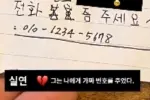 전화 좀 주세요
010-1234-5678
실연 💔 그는 나에게 가짜 번호를 주었다.